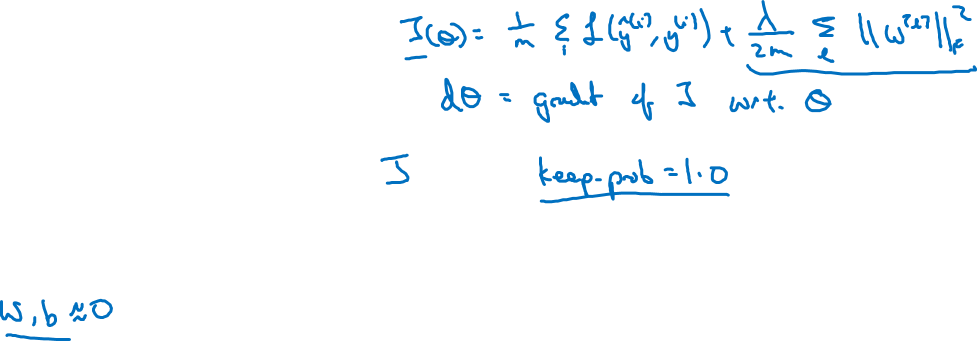 J(θ) = 1/m Σ_i L(ŷ^(i), y^(i)) + λ/2m Σ_l ||w^[l]||_F^2
dθ = gradt of J wrt. θ
J keep-prob = 1.0
w, b ≈ 0